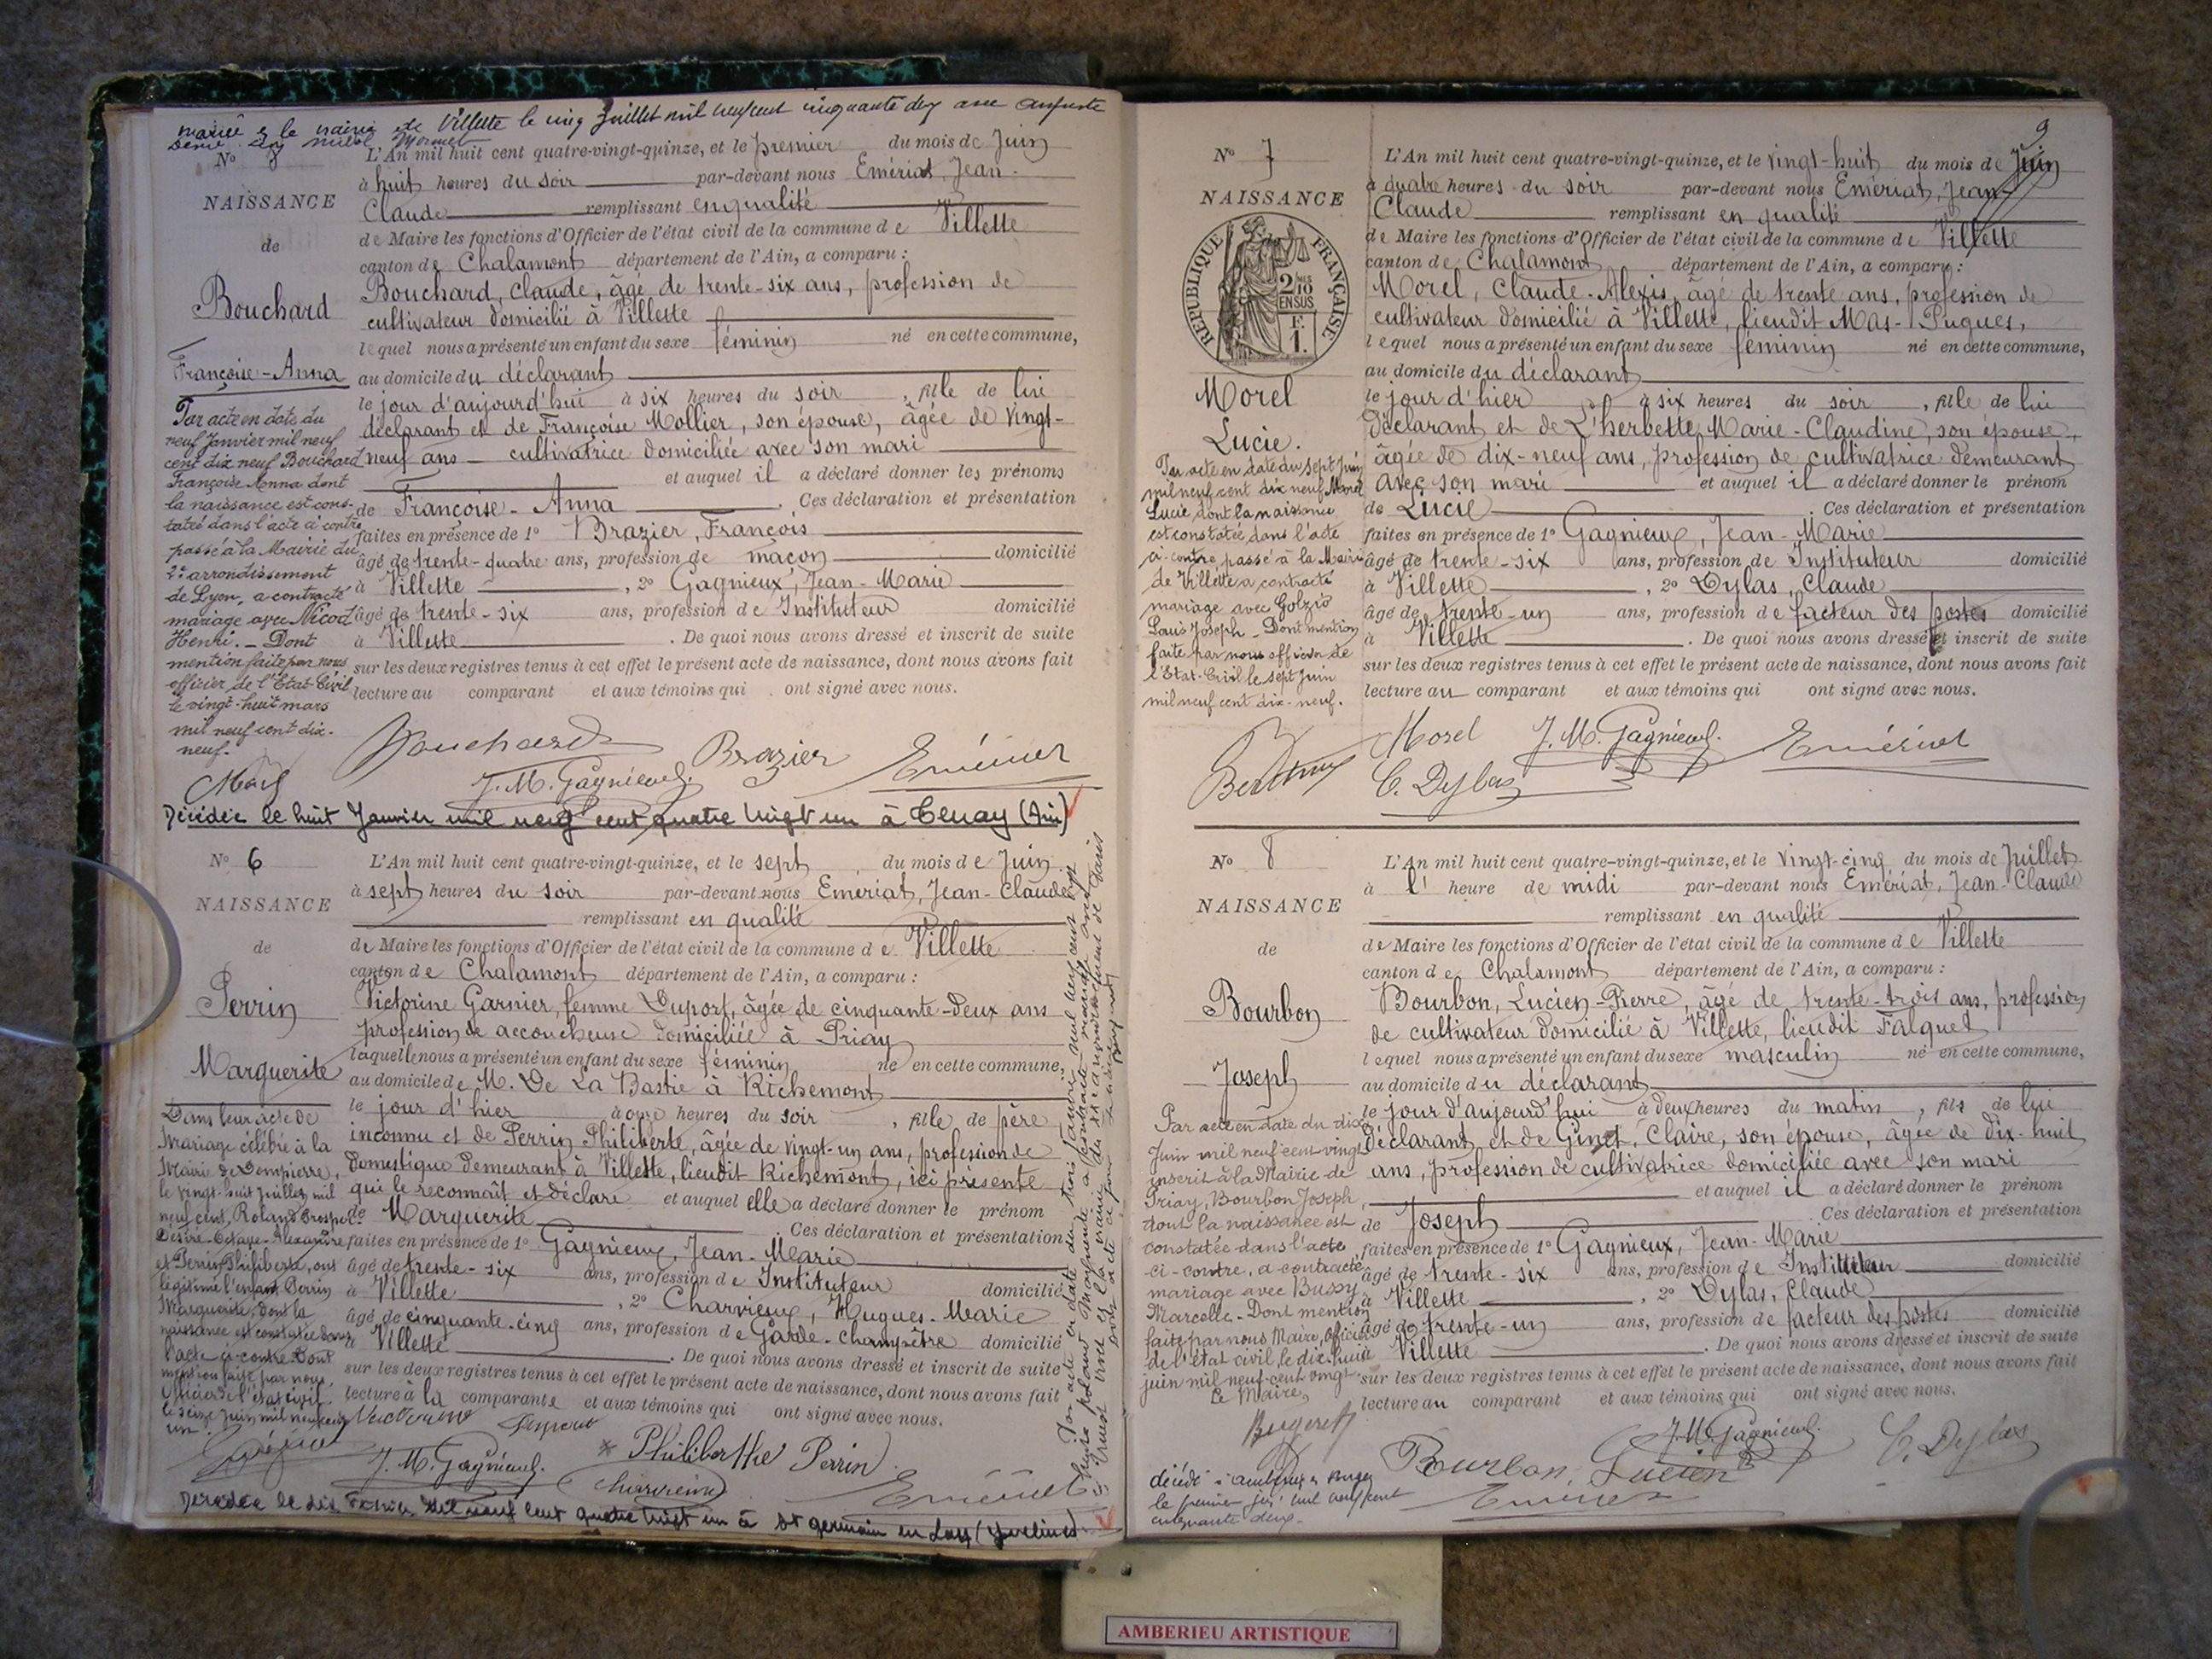 mariée à la mairie de Villette le cinq Juillet mil neuf cent cinquante deux avec Auguste
N°
L'An mil huit cent quatre-vingt-quinze, et le premier du mois de Juin
à huit heures du soir par-devant nous Emériat, Jean-
Claude remplissant en qualité
de Maire les fonctions d'Officier de l'état civil de la commune de Villette
canton de Chalamont département de l'Ain, a comparu :
Bouchard, Claude, âgé de trente-six ans, profession de
cultivateur domicilié à Villette
lequel nous a présenté un enfant du sexe féminin né en cette commune,
au domicile du déclarant
le jour d'aujourd'hui à six heures du soir, fille de lui
déclarant et de Françoise Mollier, son épouse, âgée de vingt-
neuf ans cultivatrice domiciliée avec son mari
et auquel il a déclaré donner les prénoms
de Françoise-Anna. Ces déclaration et présentation
faites en présence de 1° Brazier, François
âgé de trente-quatre ans, profession de maçon domicilié
à Villette, 2° Gagnieux, Jean-Marie
âgé de trente-six ans, profession de Instituteur domicilié
à Villette. De quoi nous avons dressé et inscrit de suite
sur les deux registres tenus à cet effet le présent acte de naissance, dont nous avons fait
lecture au comparant et aux témoins qui ont signé avec nous.
NAISSANCE
de
Bouchard
Françoise-Anna
Par acte en date du
neuf Janvier mil neuf
cent dix neuf Bouchard
Françoise Anna dont
la naissance est cons-
tatée dans l'acte ci contre
passé à la Mairie du
2e arrondissement
de Lyon, a contracté
mariage avec Nicod
Henri. - Dont
mention faite par nous
officier de l'Etat Civil
le vingt-huit mars
mil neuf cent dix-
neuf.
Bouchard Brazier Emériat
J. M. Gagnieux.
Décédée le huit Janvier mil neuf cent quatre vingt un à Tenay (Ain)
N° 6
NAISSANCE
de
Perrin
Marguerite
Dans leur acte de
Mariage célébré à la
Mairie de Dompierre,
le vingt-huit Juillet mil
neuf cent, Roland Prosper-
Désiré-Octave-Alexandre
et Perrin Philiberte, ont
légitimé l'enfant Perrin
Marguerite, dont la
naissance est constatée dans
l'acte ci-contre. Dont
mention faite par nous,
Officier de l'état civil
le seize Juin mil neuf cent
un.
L'An mil huit cent quatre-vingt-quinze, et le sept du mois de Juin
à sept heures du soir par-devant nous Emériat, Jean-Claude
remplissant en qualité
de Maire les fonctions d'Officier de l'état civil de la commune de Villette
canton de Chalamont département de l'Ain, a comparu :
Victorine Garnier, femme Duport, âgée de cinquante-deux ans
profession de accoucheuse domiciliée à Priay
laquelle nous a présenté un enfant du sexe féminin né en cette commune,
au domicile de M. De La Bastie à Richemont
le jour d'hier à onze heures du soir, fille de père
inconnu et de Perrin Philiberte, âgée de vingt-un ans, profession de
domestique demeurant à Villette, lieudit Richemont, ici présente
qui le reconnaît et déclare et auquel elle a déclaré donner le prénom
de Marguerite. Ces déclaration et présentation
faites en présence de 1° Gagnieux, Jean-Marie
âgé de trente-six ans, profession de Instituteur domicilié
à Villette, 2° Charvieux, Hugues-Marie
âgé de cinquante-cinq ans, profession de Garde-champêtre domicilié
à Villette. De quoi nous avons dressé et inscrit de suite
sur les deux registres tenus à cet effet le présent acte de naissance, dont nous avons fait
lecture à la comparante et aux témoins qui ont signé avec nous.
Philiberthe Perrin
J. M. Gagnieux. Charvieux Emériat
mil neuf cent quatre vingt un à St germain en Laye (Yvelines)
9
N° 7
NAISSANCE
RÉPUBLIQUE FRANÇAISE
2/10 EN SUS
F. 1.
Morel
Lucie.
Par acte en date du sept Juin
mil neuf cent dix neuf Morel
Lucie dont la naissance
est constatée dans l'acte
ci-contre passé à la Mairie
de Villette a contracté
mariage avec Golzio
Louis Joseph - Dont mention
faite par nous officier de
l'Etat-Civil le sept Juin
mil neuf cent dix-neuf.
L'An mil huit cent quatre-vingt-quinze, et le vingt-huit du mois de Juin
à quatre heures du soir par-devant nous Emériat, Jean-
Claude remplissant en qualité
de Maire les fonctions d'Officier de l'état civil de la commune de Villette
canton de Chalamont département de l'Ain, a comparu :
Morel, Claude-Alexis, âgé de trente ans, profession de
cultivateur domicilié à Villette, lieudit Mas-Pugues,
lequel nous a présenté un enfant du sexe féminin né en cette commune,
au domicile du déclarant
le jour d'hier à six heures du soir, fille de lui
déclarant et de L'herbette Marie-Claudine, son épouse,
âgée de dix-neuf ans, profession de cultivatrice demeurant
avec son mari et auquel il a déclaré donner le prénom
de Lucie. Ces déclaration et présentation
faites en présence de 1° Gagnieux, Jean-Marie
âgé de trente-six ans, profession de Instituteur domicilié
à Villette, 2° Dylas, Claude
âgé de trente-un ans, profession de facteur des postes domicilié
à Villette. De quoi nous avons dressé et inscrit de suite
sur les deux registres tenus à cet effet le présent acte de naissance, dont nous avons fait
lecture au comparant et aux témoins qui ont signé avec nous.
Morel J. M. Gagnieux. Emériat
C. Dylas
N° 8
NAISSANCE
de
Bourbon
Joseph
Par acte en date du dix
Juin mil neuf cent vingt
inscrit à la Mairie de
Priay, Bourbon Joseph,
dont la naissance est
constatée dans l'acte
ci-contre, a contracté
mariage avec Bussy
Marcelle - Dont mention
faite par nous Maire, Officier
de l'état civil le dix-huit
juin mil neuf-cent vingt
Le Maire,
décédé à
le premier mil neuf cent
cinquante deux.
L'An mil huit cent quatre-vingt-quinze, et le vingt-cinq du mois de Juillet
à l' heure de midi par-devant nous Emériat, Jean-Claude
remplissant en qualité
de Maire les fonctions d'Officier de l'état civil de la commune de Villette
canton de Chalamont département de l'Ain, a comparu :
Bourbon, Lucien-Pierre, âgé de trente-trois ans, profession
de cultivateur domicilié à Villette, lieudit Falquet
lequel nous a présenté un enfant du sexe masculin né en cette commune,
au domicile du déclarant
le jour d'aujourd'hui à deux heures du matin, fils de lui
déclarant et de Ginet, Claire, son épouse, âgée de dix-huit
ans, profession de cultivatrice domiciliée avec son mari
et auquel il a déclaré donner le prénom
de Joseph. Ces déclaration et présentation
faites en présence de 1° Gagnieux, Jean-Marie
âgé de trente-six ans, profession de Instituteur domicilié
à Villette, 2° Dylas, Claude
âgé de trente-un ans, profession de facteur des postes domicilié
à Villette. De quoi nous avons dressé et inscrit de suite
sur les deux registres tenus à cet effet le présent acte de naissance, dont nous avons fait
lecture au comparant et aux témoins qui ont signé avec nous.
J. M. Gagnieux. C. Dylas
Bourbon, Lucien
Emériat
AMBERIEU ARTISTIQUE